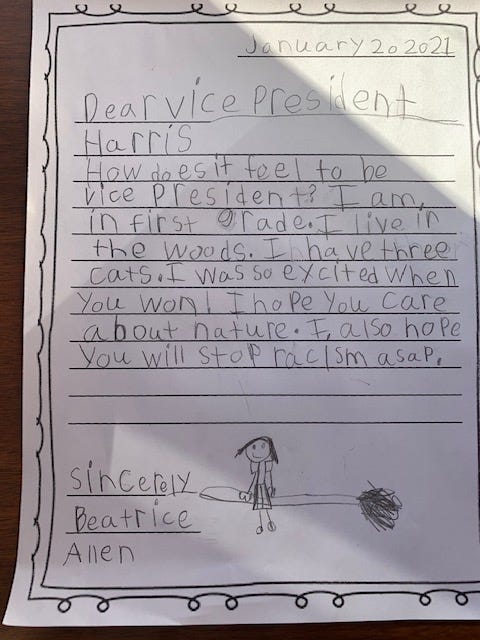 January 20 2021
Dear vice president
Harris
How does it feel to be
vice president? I am
in first grade. I live in
the woods. I have three
cats. I was so excited when
you won! I hope you care
about nature. I, also hope
you will stop racism asap.
Sincerely
Beatrice
Allen